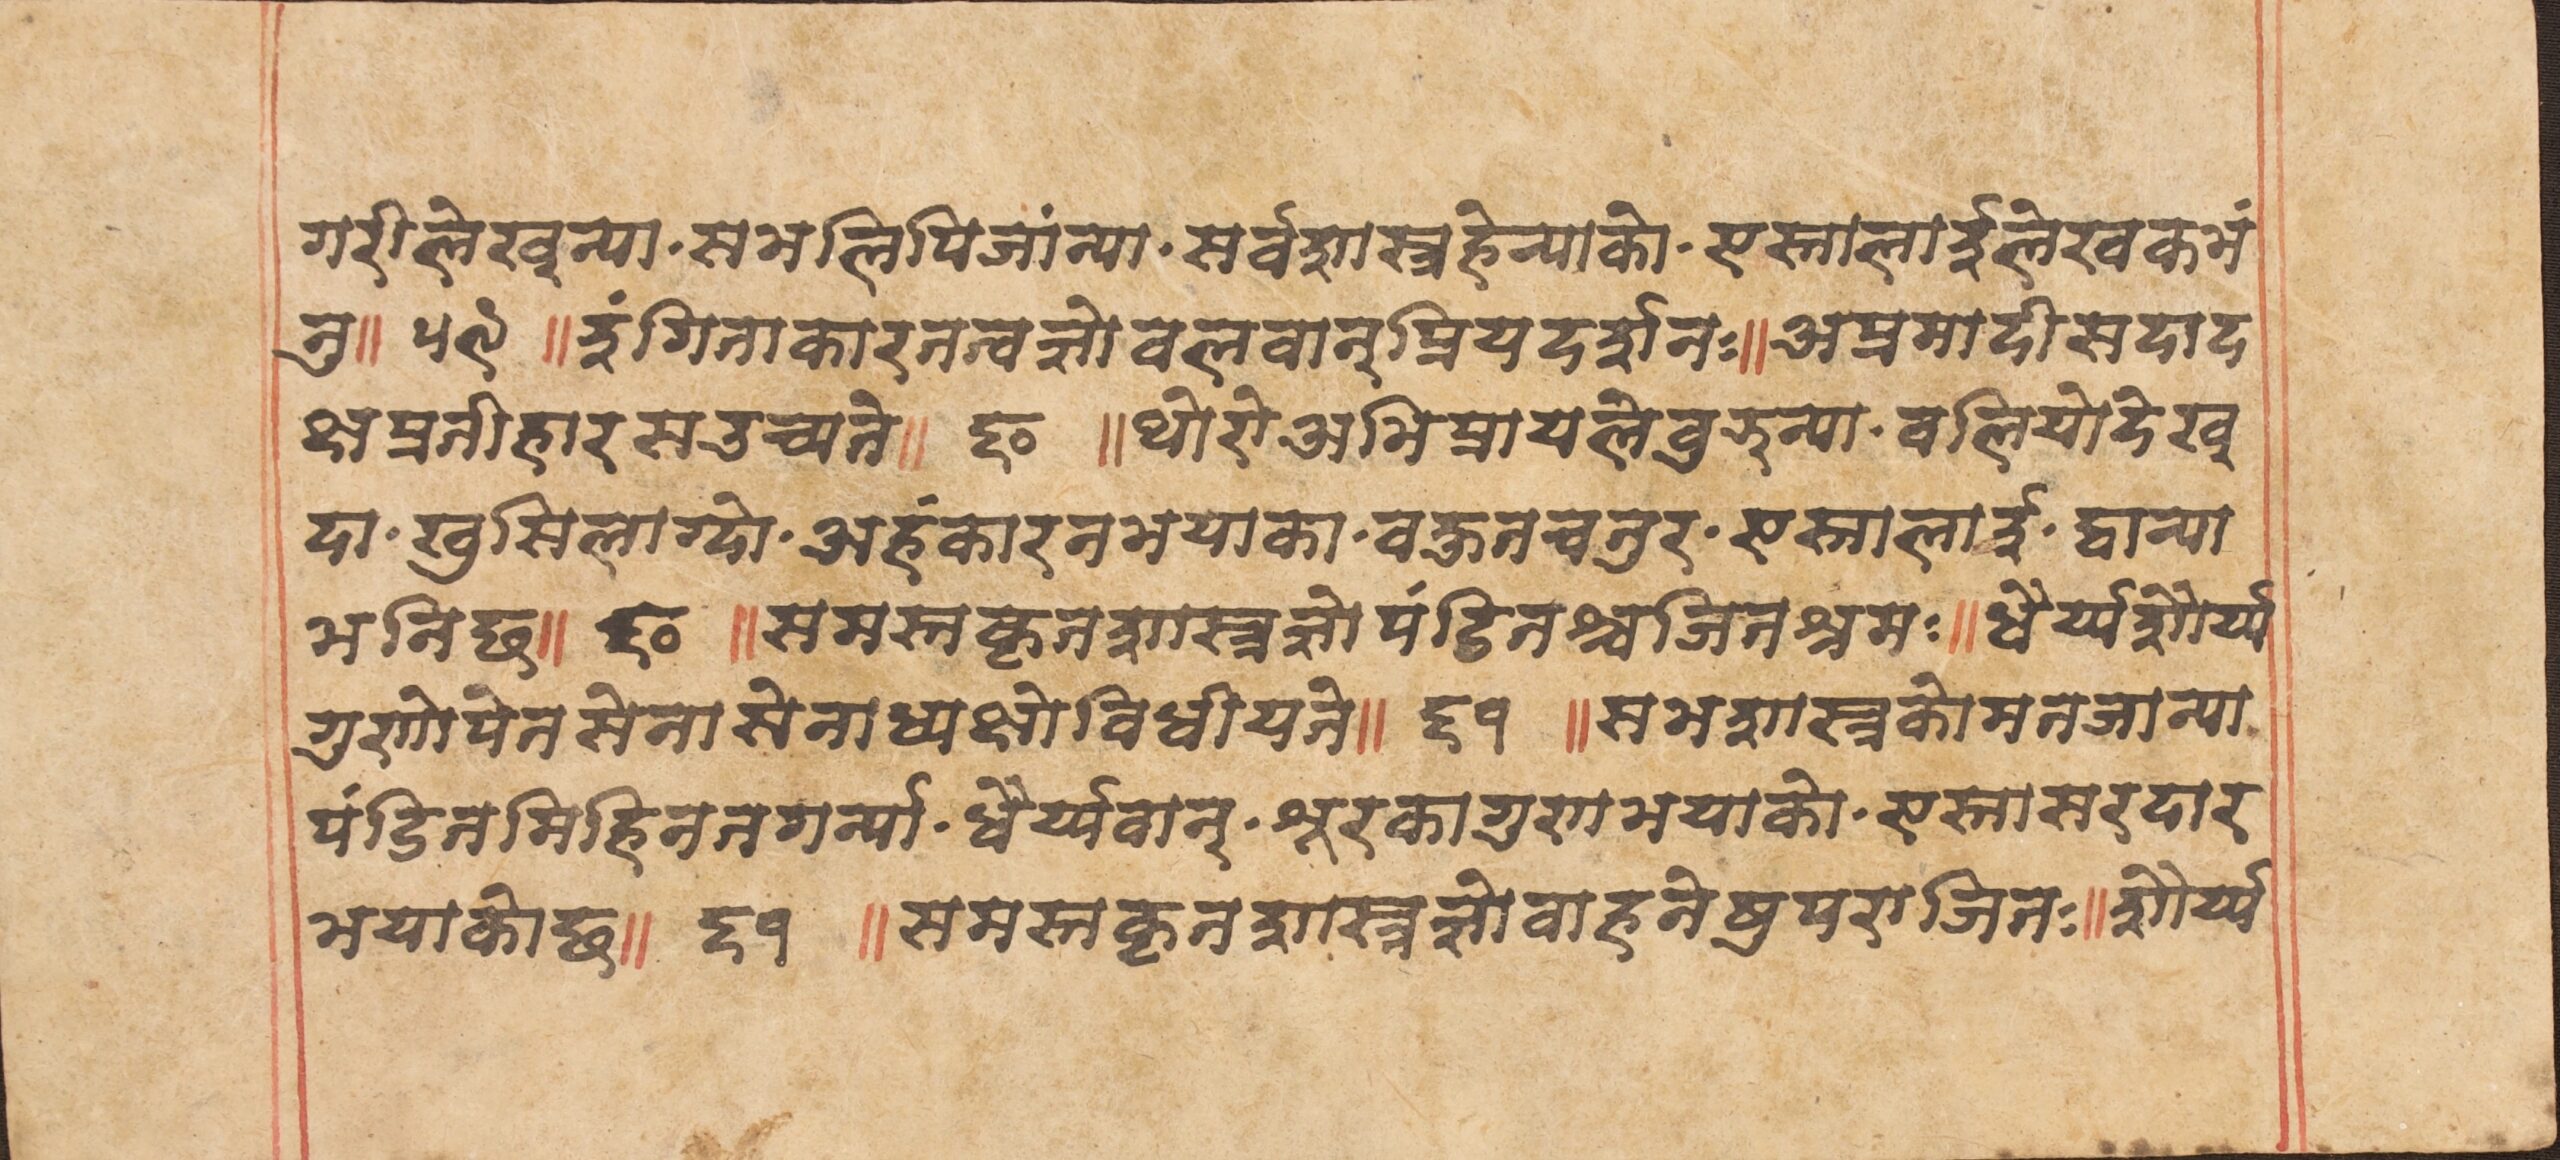 गरीलेख्न्या· सभलिपिजांन्या· सर्वशास्त्रहेन्याको· एस्तालाईलेखकभं
नु॥ ५९ ॥इंगिताकारतत्वज्ञोवलवान्प्रियदर्शनः॥अप्रमादीसदाद
क्षप्रतीहारसउच्यते॥ ६० ॥थोरोअभिप्रायलेवुझ्न्या· वलियोदेख्
दा· खुसिलाग्दो· अहंकारनभयाका· वक्तनचतुर· एस्तालाई· द्वान्या
भनिछ॥ ६० ॥समस्तकृतशास्त्रज्ञोपंडितश्चजितश्रमः॥धैर्य्यशौर्य्य
गुणोपेतसेनासेनाध्यक्षोविधीयते॥ ६१ ॥सभशास्त्रकोमतजान्या
पंडितमिहितनगर्न्या· धैर्य्यवान्· शूरकागुणभयाको· एस्तासरदार
भयाकोछ॥ ६१ ॥समस्तकृतशास्त्रज्ञोवाहनेषुपराजितः॥शौर्य्य